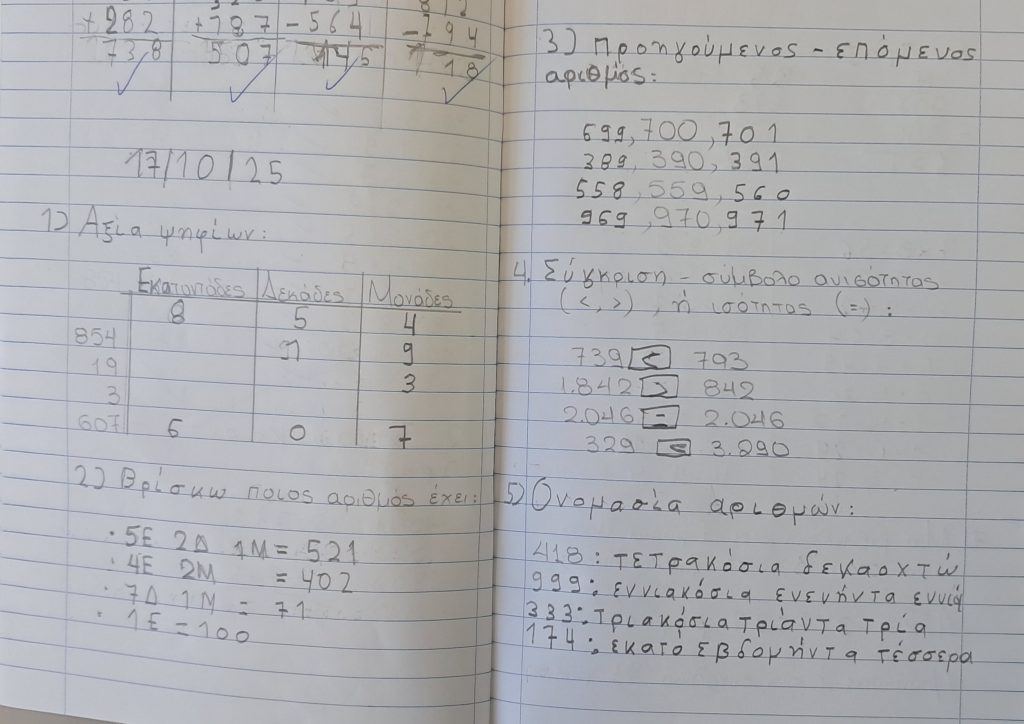 +282 +787 -564 -794
738 507 145 18
17/10/25
1) Αξία ψηφίων:
Εκατοντάδες Δεκάδες Μονάδες
854 8 5 4
19 9
3 3
607 6 0 7
2) Βρίσκω ποιος αριθμός έχει:
· 5Ε 2Δ 1Μ = 521
· 4Ε 2Μ = 402
· 7Δ 1Μ = 71
· 1Ε = 100
3) Προηγούμενος - επόμενος
αριθμός:
699, 700, 701
389, 390, 391
558, 559, 560
969, 970, 971
4. Σύγκριση - σύμβολο ανισότητας
(<, >), ή ισότητας (=):
739 < 793
1.842 > 842
2.046 = 2.046
329 < 3.290
5) Ονομασία αριθμών:
418: τετρακόσια δεκαοχτώ
999: εννιακόσια ενενήντα εννιά
333: Τριακόσια τριάντα τρία
174: εκατό εβδομήντα τέσσερα